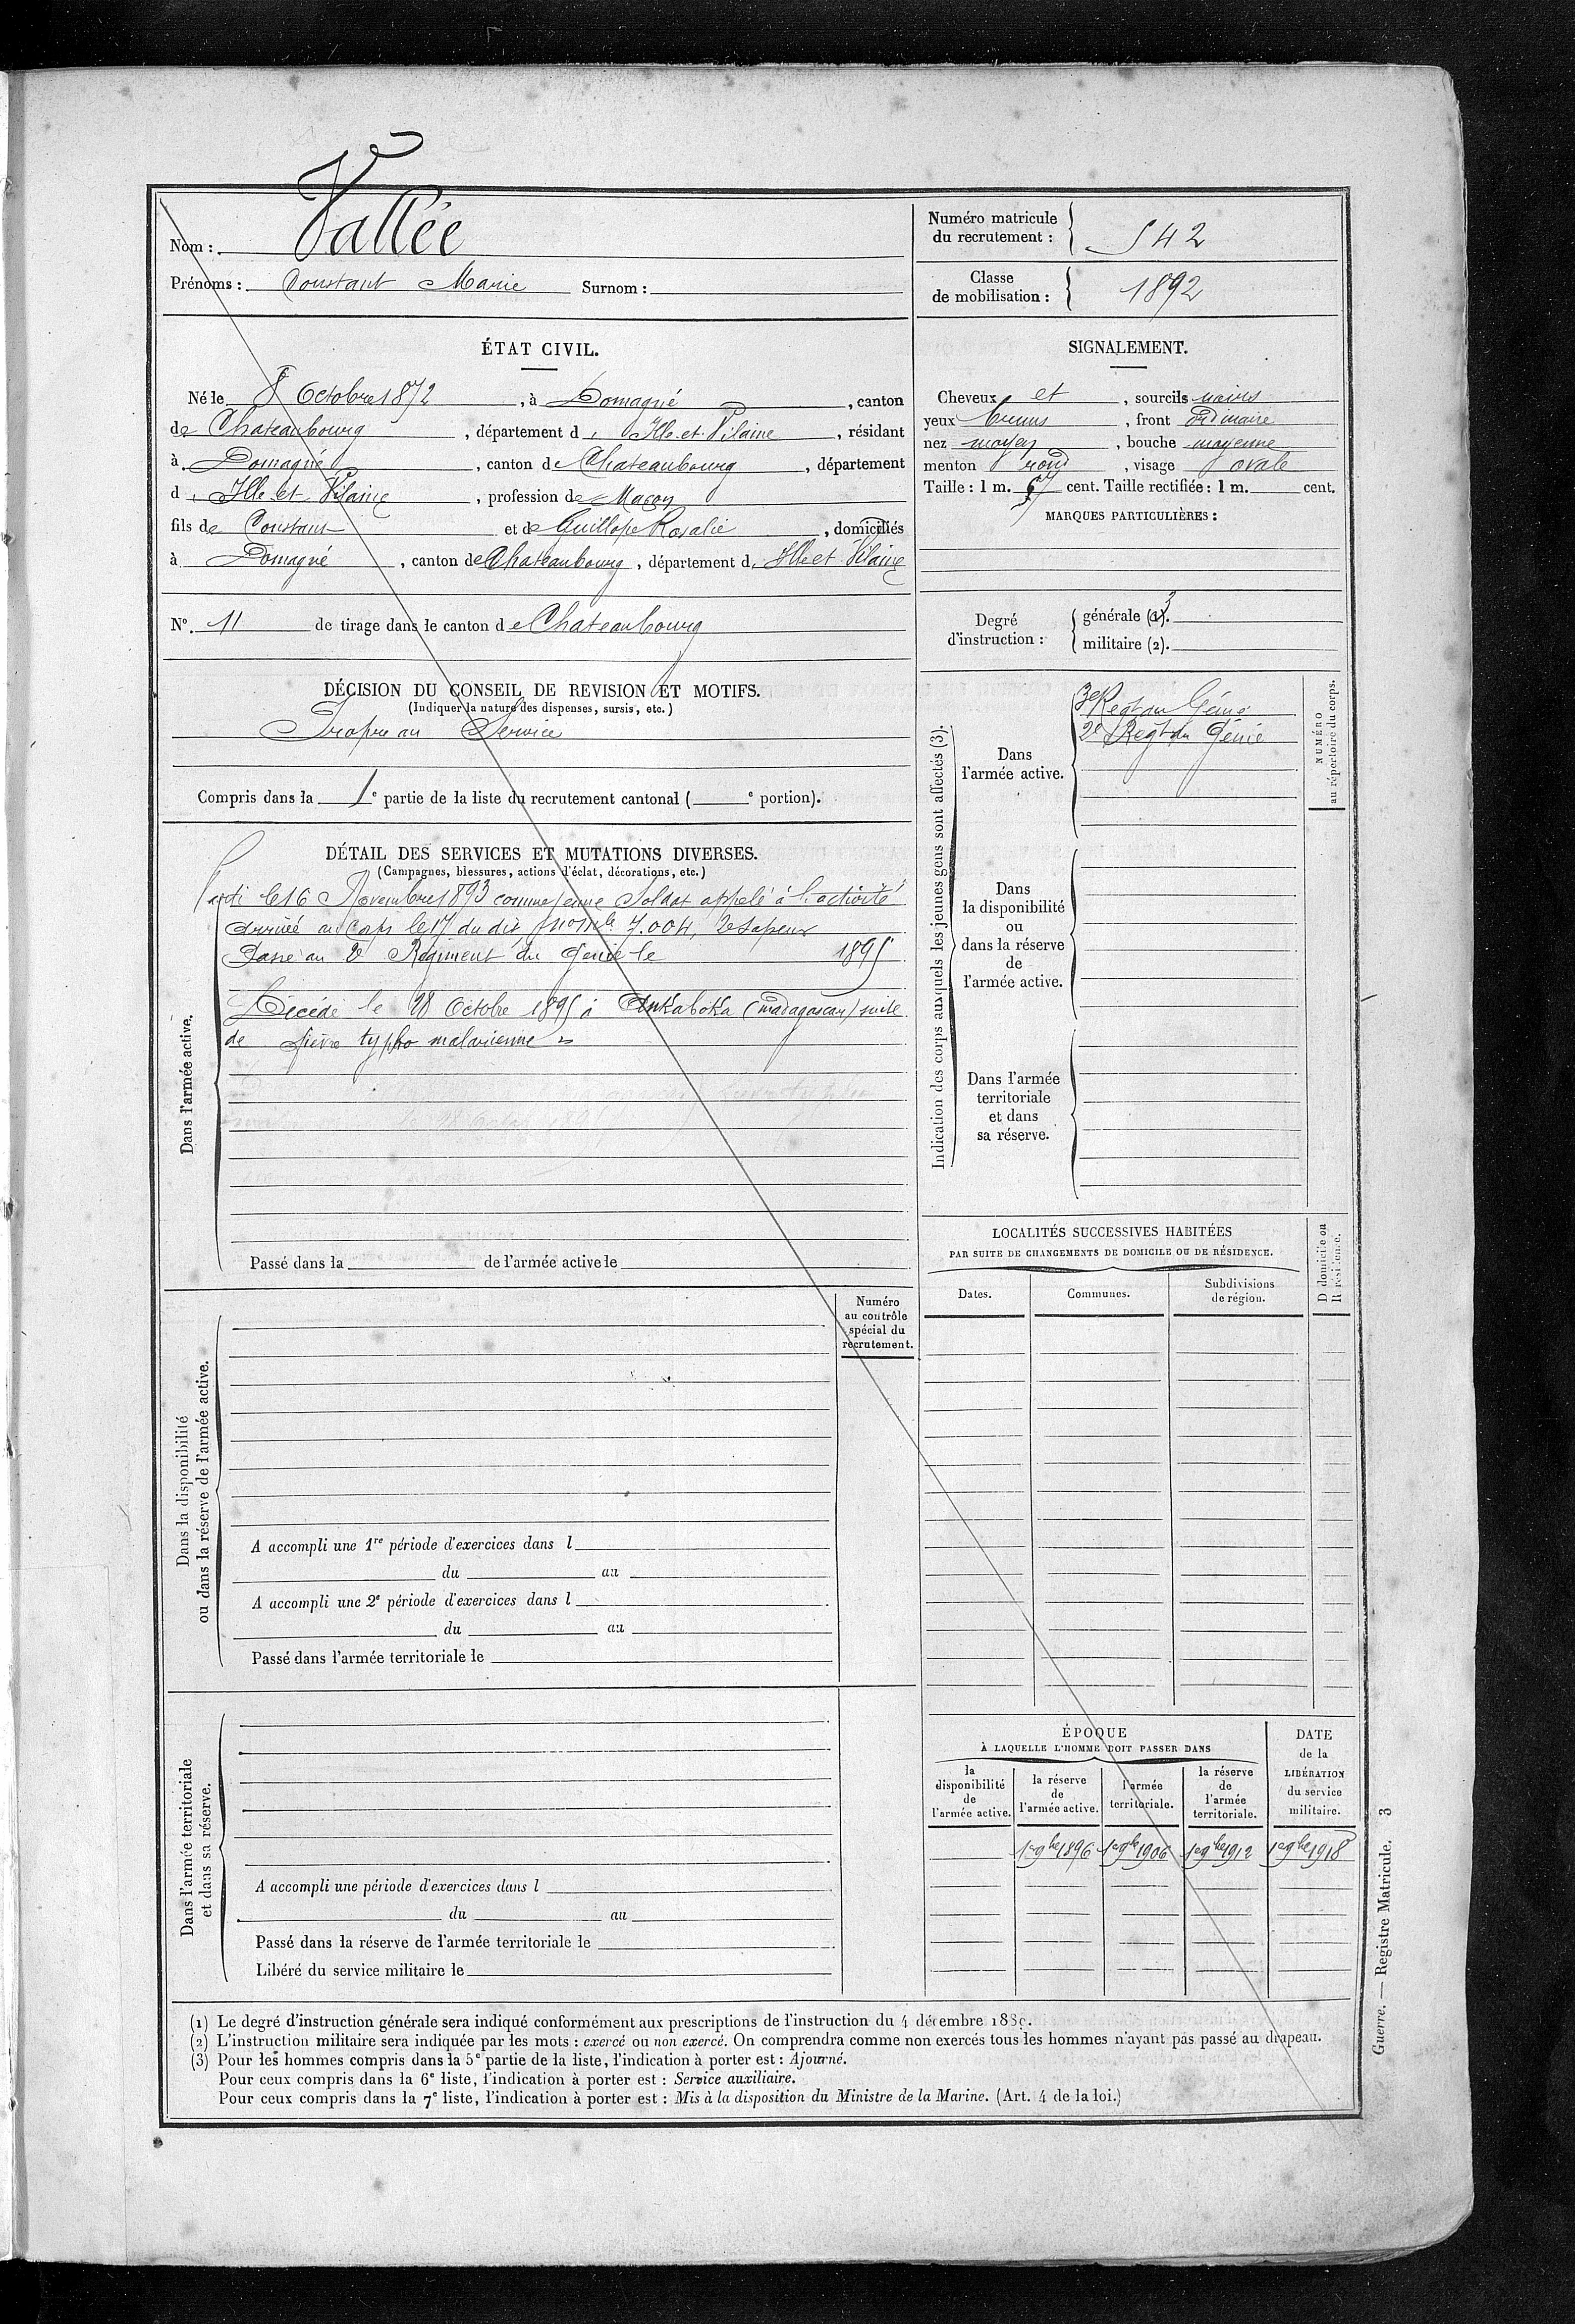 Nom : Vallée
Prénoms : Constant Marie Surnom :
Numéro matricule
du recrutement : 542
Classe
de mobilisation : 1892
ÉTAT CIVIL.
Né le 8 Octobre 1872, à Domagné, canton
de Chateaubourg, département d'Ille et Vilaine, résidant
à Domagné, canton de Chateaubourg, département
d'Ille et Vilaine, profession de Maçon
fils de Constant et de Guillope Rosalie, domiciliés
à Domagné, canton de Chateaubourg, département d'Ille et Vilaine
N°. 11 de tirage dans le canton de Chateaubourg
SIGNALEMENT.
Cheveux et, sourcils noirs
yeux bruns, front ordinaire
nez moyen, bouche moyenne
menton rond, visage ovale
Taille : 1 m. 67 cent. Taille rectifiée : 1 m. cent.
MARQUES PARTICULIÈRES :
Degré
d'instruction :
générale (1). 3
militaire (2).
DÉCISION DU CONSEIL DE REVISION ET MOTIFS.
(Indiquer la nature des dispenses, sursis, etc.)
Propre au Service
Compris dans la 1e partie de la liste du recrutement cantonal ( e portion).
DÉTAIL DES SERVICES ET MUTATIONS DIVERSES.
(Campagnes, blessures, actions d'éclat, décorations, etc.)
Dans l'armée active.
Parti le 16 Novembre 1893 comme jeune Soldat appelé à l'activité
Arrivé au Corps le 17 du dit, no mle 7.004, 2e sapeur
Passé au 2e Régiment du Génie le 1895
Décédé le 28 Octobre 1895 à Ankaboka (Madagascar) suite
de fièvre typho malarienne
Passé dans la de l'armée active le
Indication des corps auxquels les jeunes gens sont affectés (3).
NUMÉRO
au répertoire du corps.
Dans
l'armée active.
3e Regt du Génie
2e Regt du Génie
Dans
la disponibilité
ou
dans la réserve
de
l'armée active.
Dans l'armée
territoriale
et dans
sa réserve.
LOCALITÉS SUCCESSIVES HABITÉES
PAR SUITE DE CHANGEMENTS DE DOMICILE OU DE RÉSIDENCE.
Dates.
Communes.
Subdivisions
de région.
D domicile ou
R résidence.
Dans la disponibilité
ou dans la réserve de l'armée active.
Numéro
au contrôle
spécial du
recrutement.
A accompli une 1re période d'exercices dans l
du au
A accompli une 2e période d'exercices dans l
du au
Passé dans l'armée territoriale le
Dans l'armée territoriale
et dans sa réserve.
A accompli une période d'exercices dans l
du au
Passé dans la réserve de l'armée territoriale le
Libéré du service militaire le
ÉPOQUE
À LAQUELLE L'HOMME DOIT PASSER DANS
la
disponibilité
de
l'armée active.
la réserve
de
l'armée active.
l'armée
territoriale.
la réserve
de
l'armée
territoriale.
DATE
de la
LIBÉRATION
du service
militaire.
1er 9bre 1896 1er 9bre 1906 1er 9bre 1912 1er 9bre 1918
(1) Le degré d'instruction générale sera indiqué conformément aux prescriptions de l'instruction du 4 décembre 1889.
(2) L'instruction militaire sera indiquée par les mots : exercé ou non exercé. On comprendra comme non exercés tous les hommes n'ayant pas passé au drapeau.
(3) Pour les hommes compris dans la 5e partie de la liste, l'indication à porter est : Ajourné.
Pour ceux compris dans la 6e liste, l'indication à porter est : Service auxiliaire.
Pour ceux compris dans la 7e liste, l'indication à porter est : Mis à la disposition du Ministre de la Marine. (Art. 4 de la loi.)
Guerre. — Registre Matricule. 3